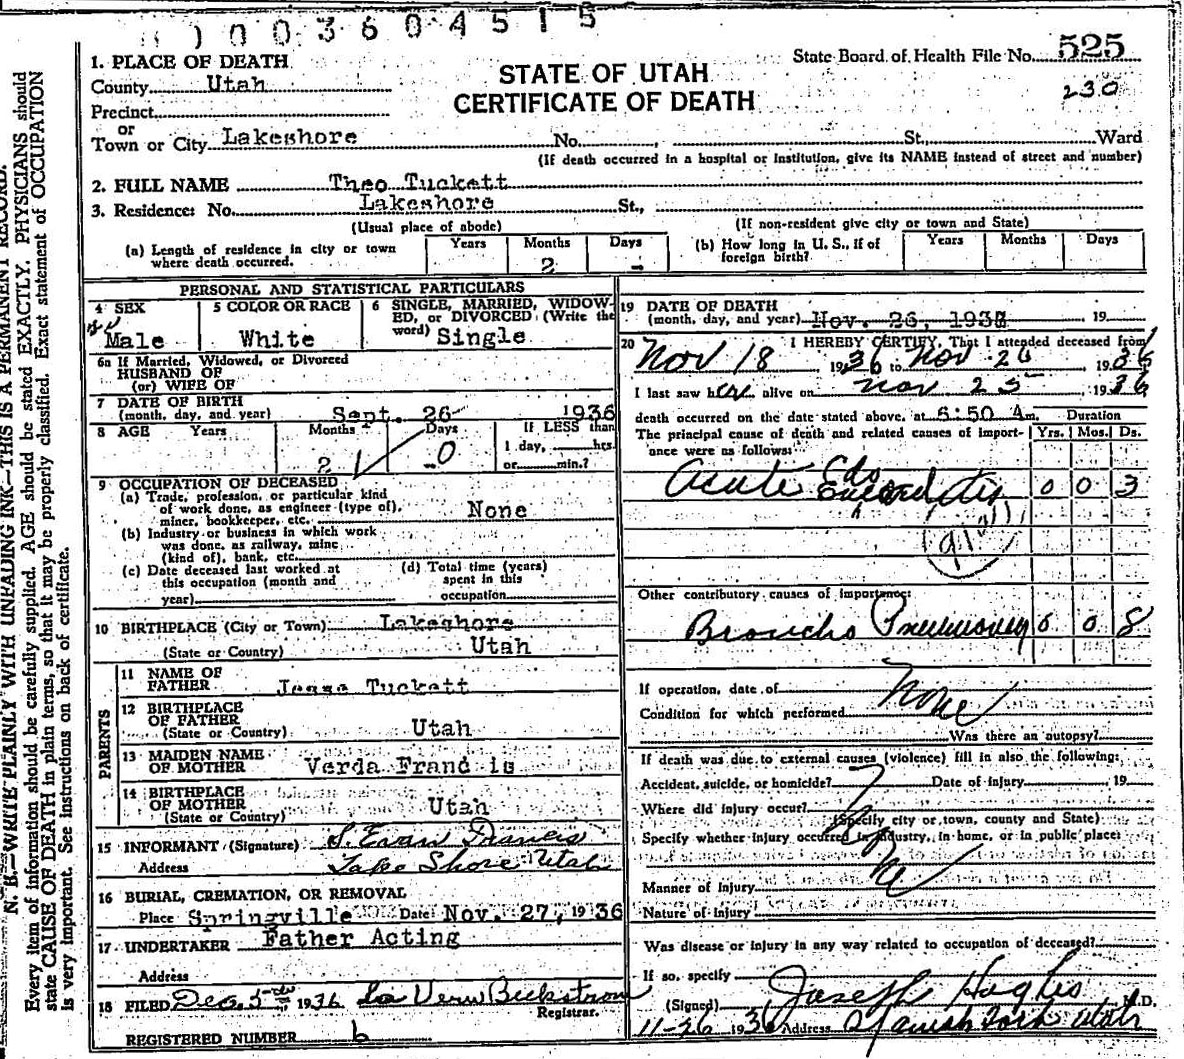 1 0 0 3 6 0 4 5 1 5
State Board of Health File No. 525
230
STATE OF UTAH
CERTIFICATE OF DEATH
1. PLACE OF DEATH
County Utah
Precinct
or
Town or City Lakeshore No. , St., Ward
(If death occurred in a hospital or institution, give its NAME instead of street and number)
2. FULL NAME Theo Tuckett
3. Residence: No. Lakeshore St.,
(Usual place of abode) (If non-resident give city or town and State)
(a) Length of residence in city or town where death occurred. Years Months 2 Days -
(b) How long in U. S., if of foreign birth? Years Months Days
PERSONAL AND STATISTICAL PARTICULARS
4 SEX Male
5 COLOR OR RACE White
6 SINGLE, MARRIED, WIDOWED, or DIVORCED (Write the word) Single
6a If Married, Widowed, or Divorced
HUSBAND OF
(or) WIFE OF
7 DATE OF BIRTH
(month, day, and year) Sept. 26 1936
8 AGE Years Months 2 Days 0 If LESS than
1 day, hrs.
or min.?
9 OCCUPATION OF DECEASED
(a) Trade, profession, or particular kind
of work done, as engineer (type of),
miner, bookkeeper, etc. None
(b) Industry or business in which work
was done, as railway, mine
(kind of), bank, etc.
(c) Date deceased last worked at
this occupation (month and
year)
(d) Total time (years)
spent in this
occupation
10 BIRTHPLACE (City or Town) Lakeshore
(State or Country) Utah
PARENTS
11 NAME OF
FATHER Jesse Tuckett
12 BIRTHPLACE
OF FATHER
(State or Country) Utah
13 MAIDEN NAME
OF MOTHER Verda Francis
14 BIRTHPLACE
OF MOTHER
(State or Country) Utah
15 INFORMANT (Signature) S. Evan Francis
Address Lake Shore Utah
16 BURIAL, CREMATION, OR REMOVAL
Place Springville Date Nov. 27, 1936
17 UNDERTAKER Father Acting
Address
18 FILED Dec. 5 1936 La Vern Beckstrom
Registrar.
REGISTERED NUMBER 6
19 DATE OF DEATH
(month, day, and year) Nov. 26, 1936 19
20 I HEREBY CERTIFY, That I attended deceased from
Nov 18 1936 to Nov 26 1936
I last saw h alive on Nov 25 1936
death occurred on the date stated above, at 5:50 A m. Duration
The principal cause of death and related causes of importance were as follows: Yrs. Mos. Ds.
Acute Endocarditis 0 0 3
Other contributory causes of importance:
Broncho Pneumonia 0 0 8
If operation, date of None
Condition for which performed
Was there an autopsy?
If death was due to external causes (violence) fill in also the following:
Accident, suicide, or homicide? Date of injury 19
Where did injury occur?
(Specify city or town, county and State)
Specify whether injury occurred in industry, in home, or in public place:
Manner of Injury
Nature of Injury
Was disease or injury in any way related to occupation of deceased?
If so, specify
(Signed) Joseph Hughes M.D.
11-26 1936 Address Spanish Fork Utah
N. B.—WRITE PLAINLY WITH UNFADING INK—THIS IS A PERMANENT RECORD.
Every item of information should be carefully supplied. AGE should be stated EXACTLY. PHYSICIANS should
state CAUSE OF DEATH in plain terms, so that it may be properly classified. Exact statement of OCCUPATION
is very important. See instructions on back of certificate.